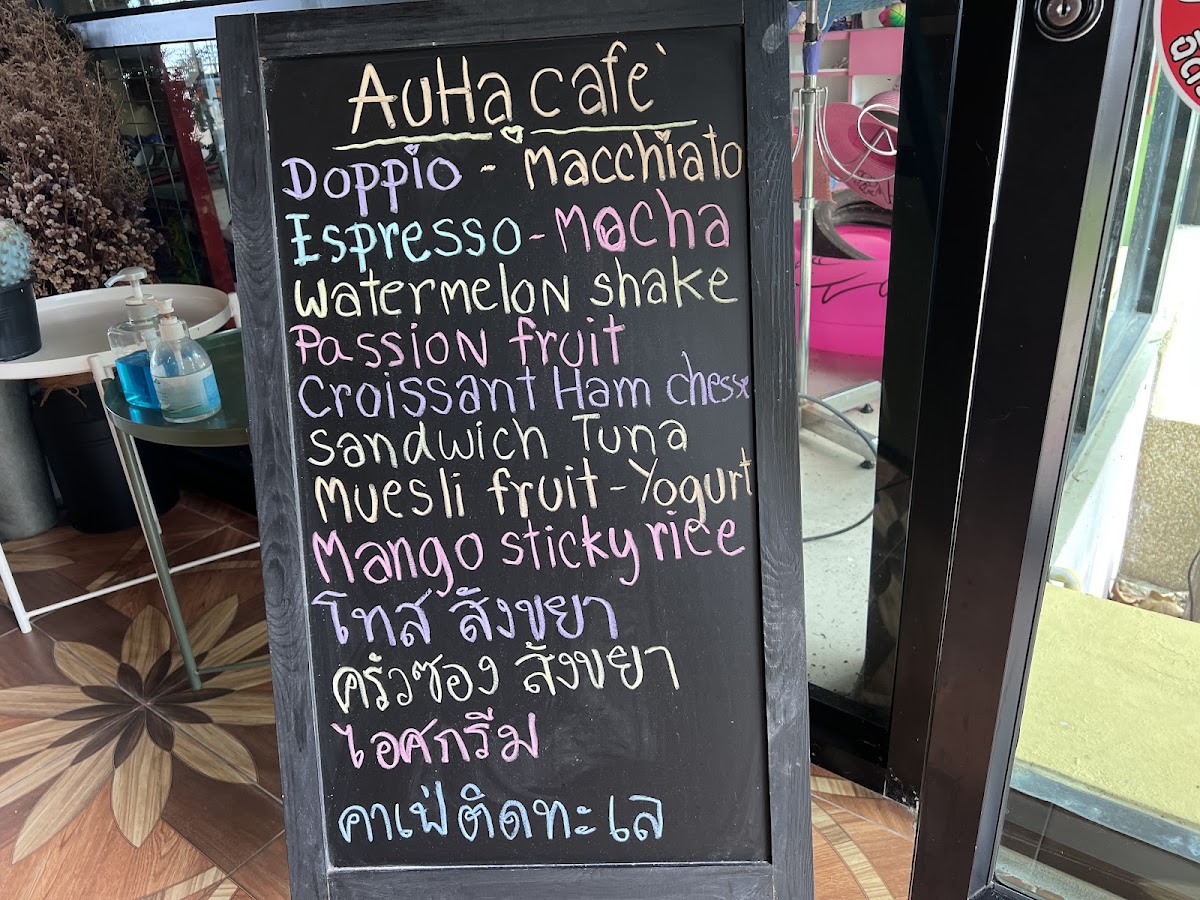 AuHa cafè
Doppio - Macchiato
Espresso - Mocha
Watermelon shake
Passion fruit
Croissant Ham chesse
Sandwich Tuna
Muesli fruit - Yogurt
Mango sticky rice
โทส สังขยา
ครัวซอง สังขยา
ไอศกรีม
คาเฟ่ติดทะเล